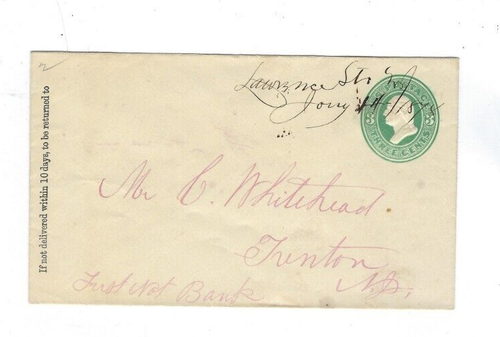 If not delivered within 10 days, to be returned to
Lawrence Str
Jany 14
POSTAGE
THREE CENTS
Mr C. Whitehead
Trenton
N.J.
First Nat Bank